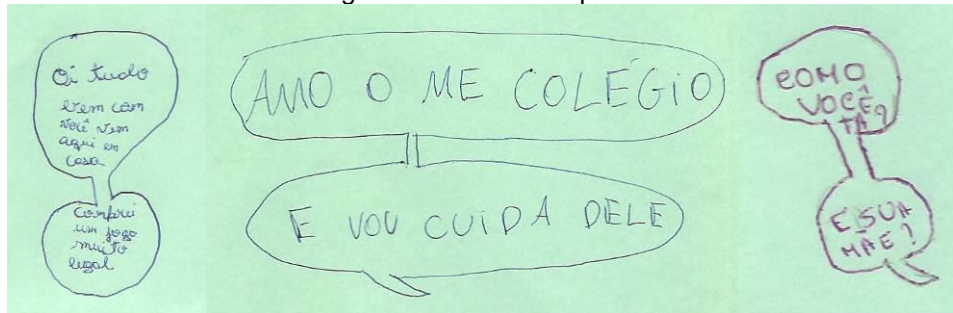 Oi tudo
bem com
você vem
aqui em
casa
comprei
um jogo
muito
legal
AMO O ME COLÉGIO
E VOU CUIDA DELE
COMO
VOCÊ
TA?
E SUA
MÃE?